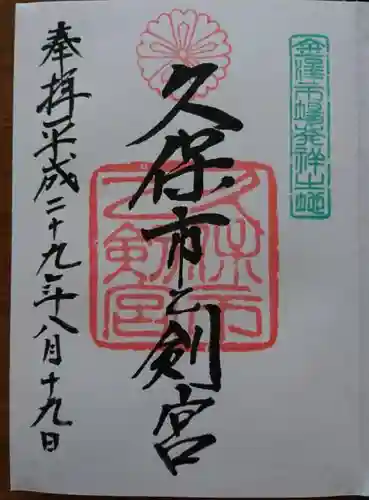 金澤市場発祥之地
久保市乙剣宮
久保市乙剣宮
奉拝 平成二十九年八月十九日